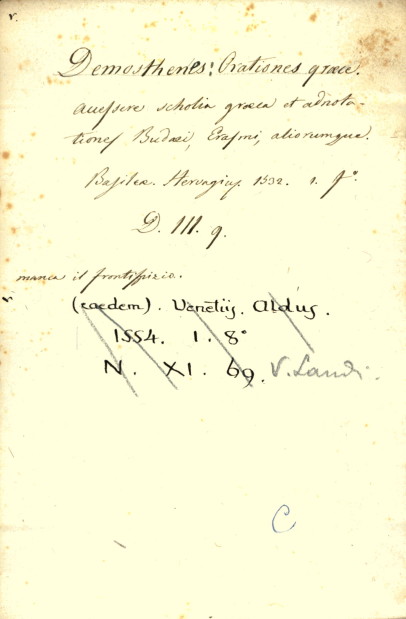 v.
Demosthenes: Orationes græce.
accessere scholia græca et adnota-
tiones Budæi, Erasmi, aliorumque.
Basileæ. Hervagius, 1532. 1. fº.
D. III. 9.
manca il frontispizio.
(eaedem). Venetiis. Aldus.
1554. 1. 8º
N. XI. 69. V. Landi.
C